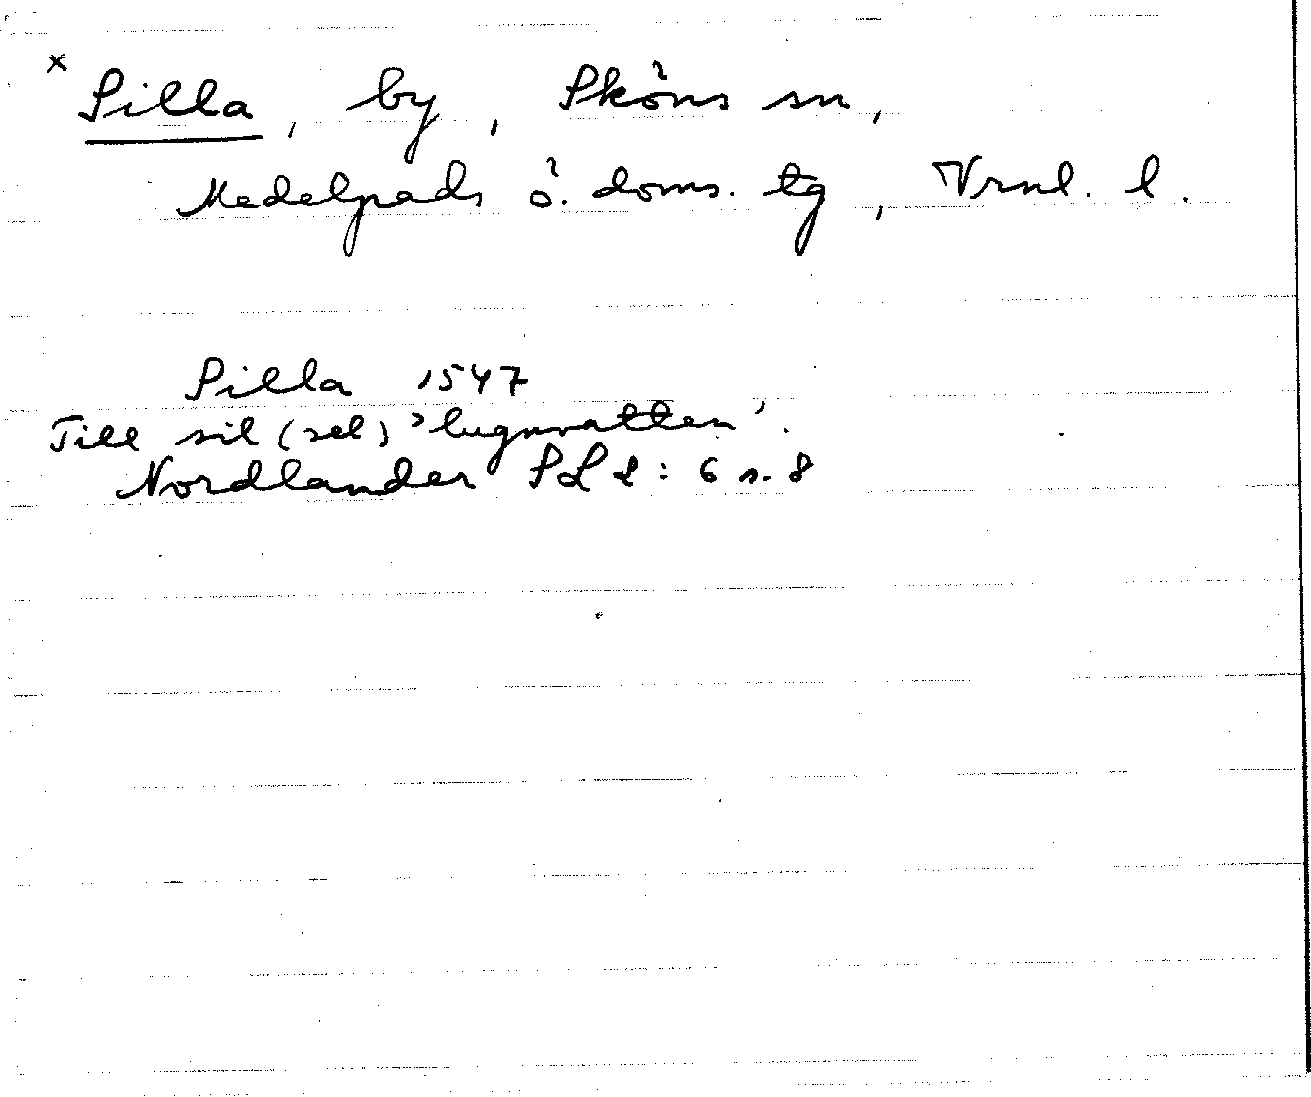 × Silla, by, Sköns sn,
Medelpads ö. doms. tg, Vrnl. l.
Silla 1547
Till sil (sel) 'lugnvatten'.
Nordlander SL 2:6 s. 8